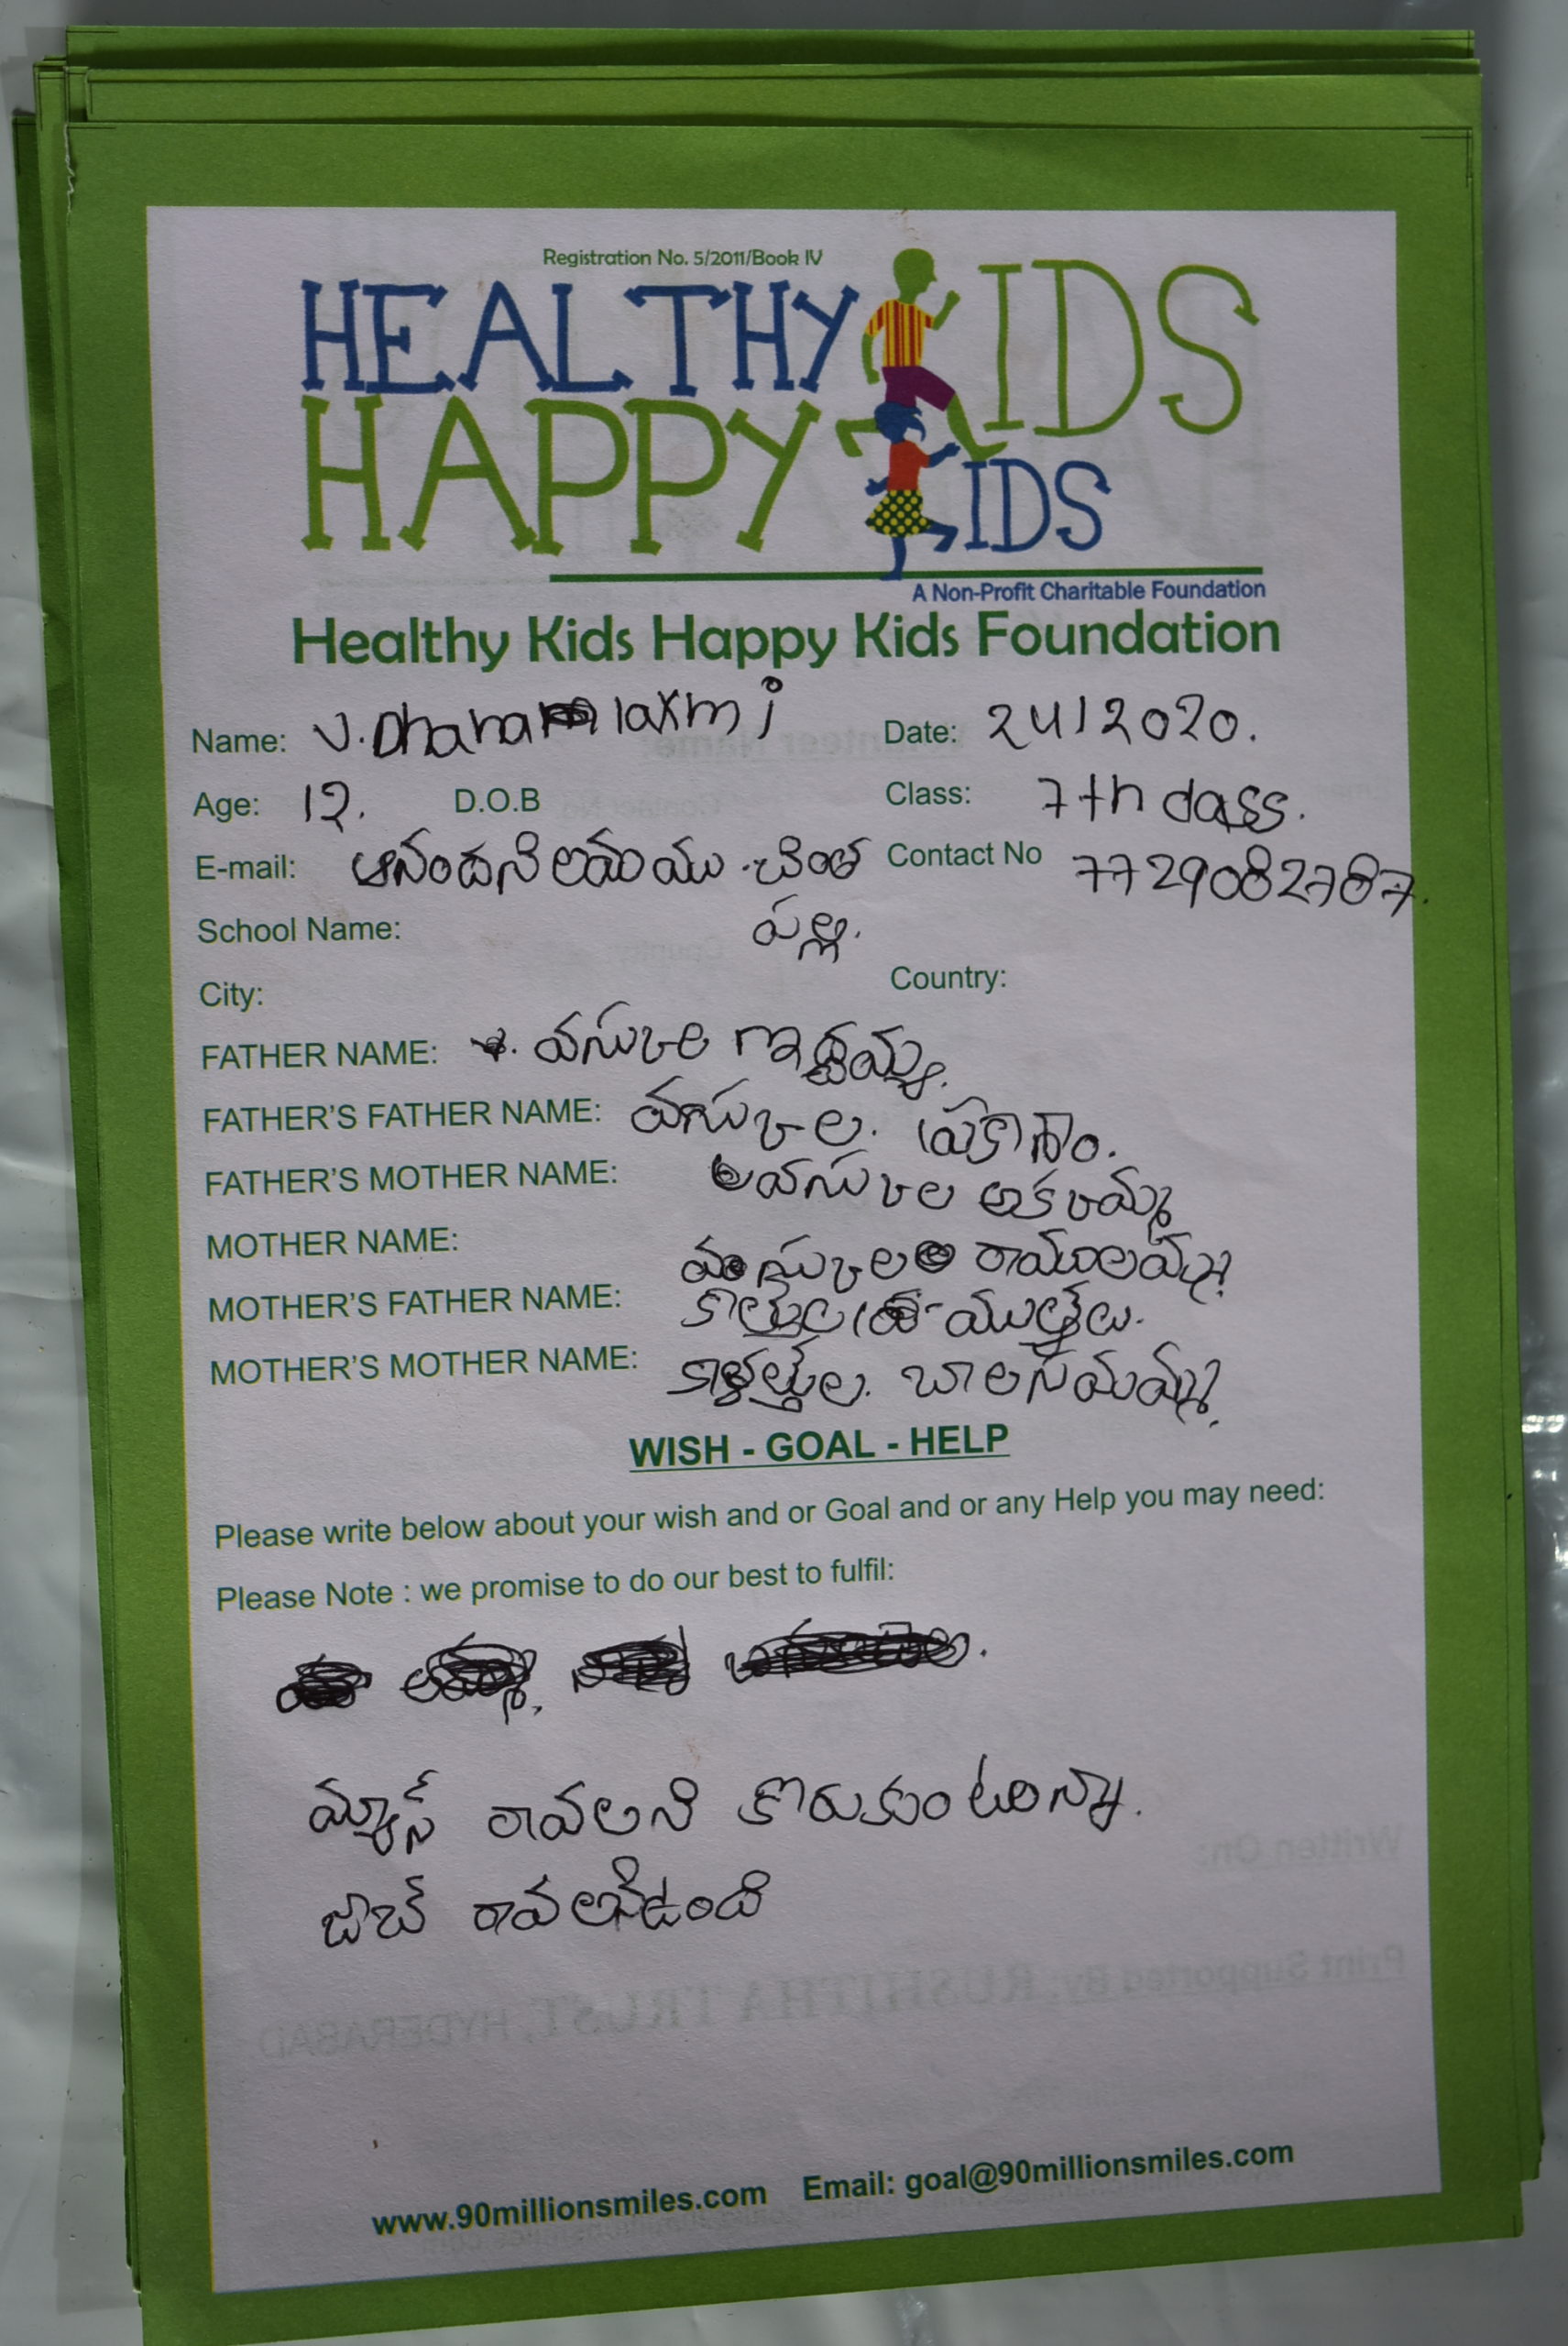 Registration No. 5/2011/Book IV
HEALTHY KIDS
HAPPY KIDS
A Non-Profit Charitable Foundation
Healthy Kids Happy Kids Foundation
Name: V. Dhana laxmi Date: 24/2020.
Age: 12. D.O.B Class: 7th class.
E-mail: ఆనందనిలయము. చింత Contact No 7729082787.
School Name: పల్లి.
City: Country:
FATHER NAME: వసుకుల
FATHER'S FATHER NAME: వసుకుల. ప్రకాశం.
FATHER'S MOTHER NAME: వసుకుల అకకమ్మ
MOTHER NAME: రాములమ్మ
MOTHER'S FATHER NAME: ముత్తేలు.
MOTHER'S MOTHER NAME:
WISH - GOAL - HELP
Please write below about your wish and or Goal and or any Help you may need:
Please Note : we promise to do our best to fulfil:
మ్యాన్స్ రావలని కొరుకుంటిన్నా.
జాబ్ రావలనిఉంది
www.90millionsmiles.com Email: goal@90millionsmiles.com